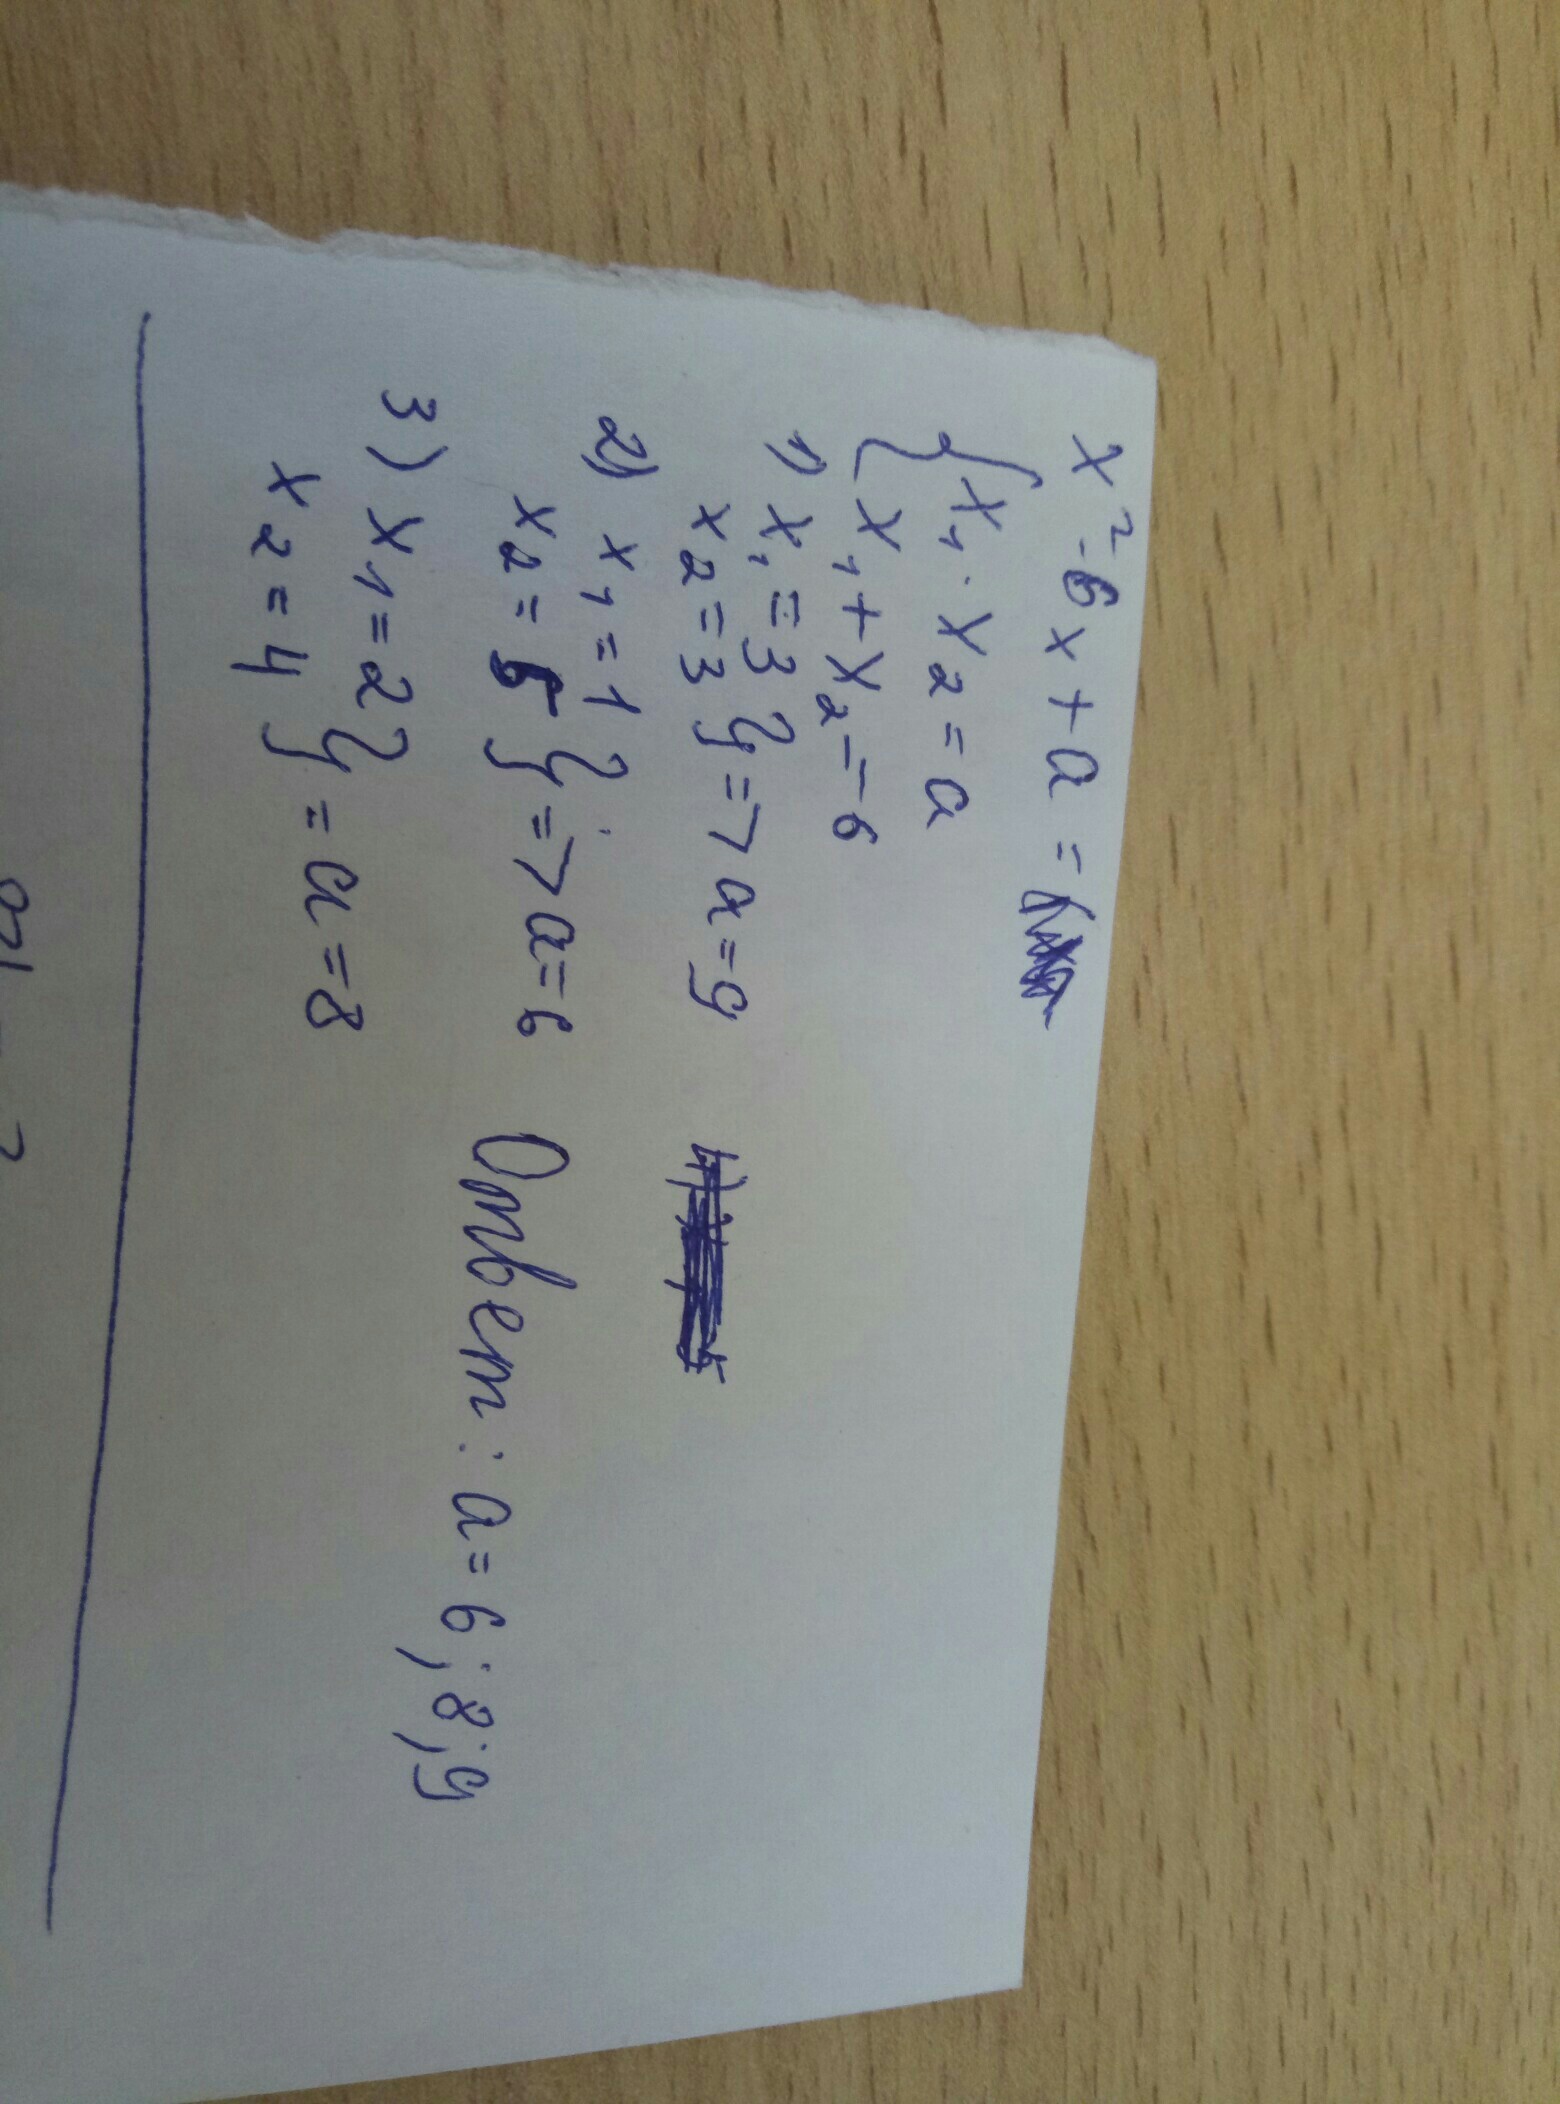 x²-6x+a=
{x₁·x₂=a
{x₁+x₂=6
1) x₁=3
x₂=3 } => a=9
2) x₁=1
x₂=5 } => a=6
3) x₁=2
x₂=4 } = a=8
Ответ: a=6;8;9